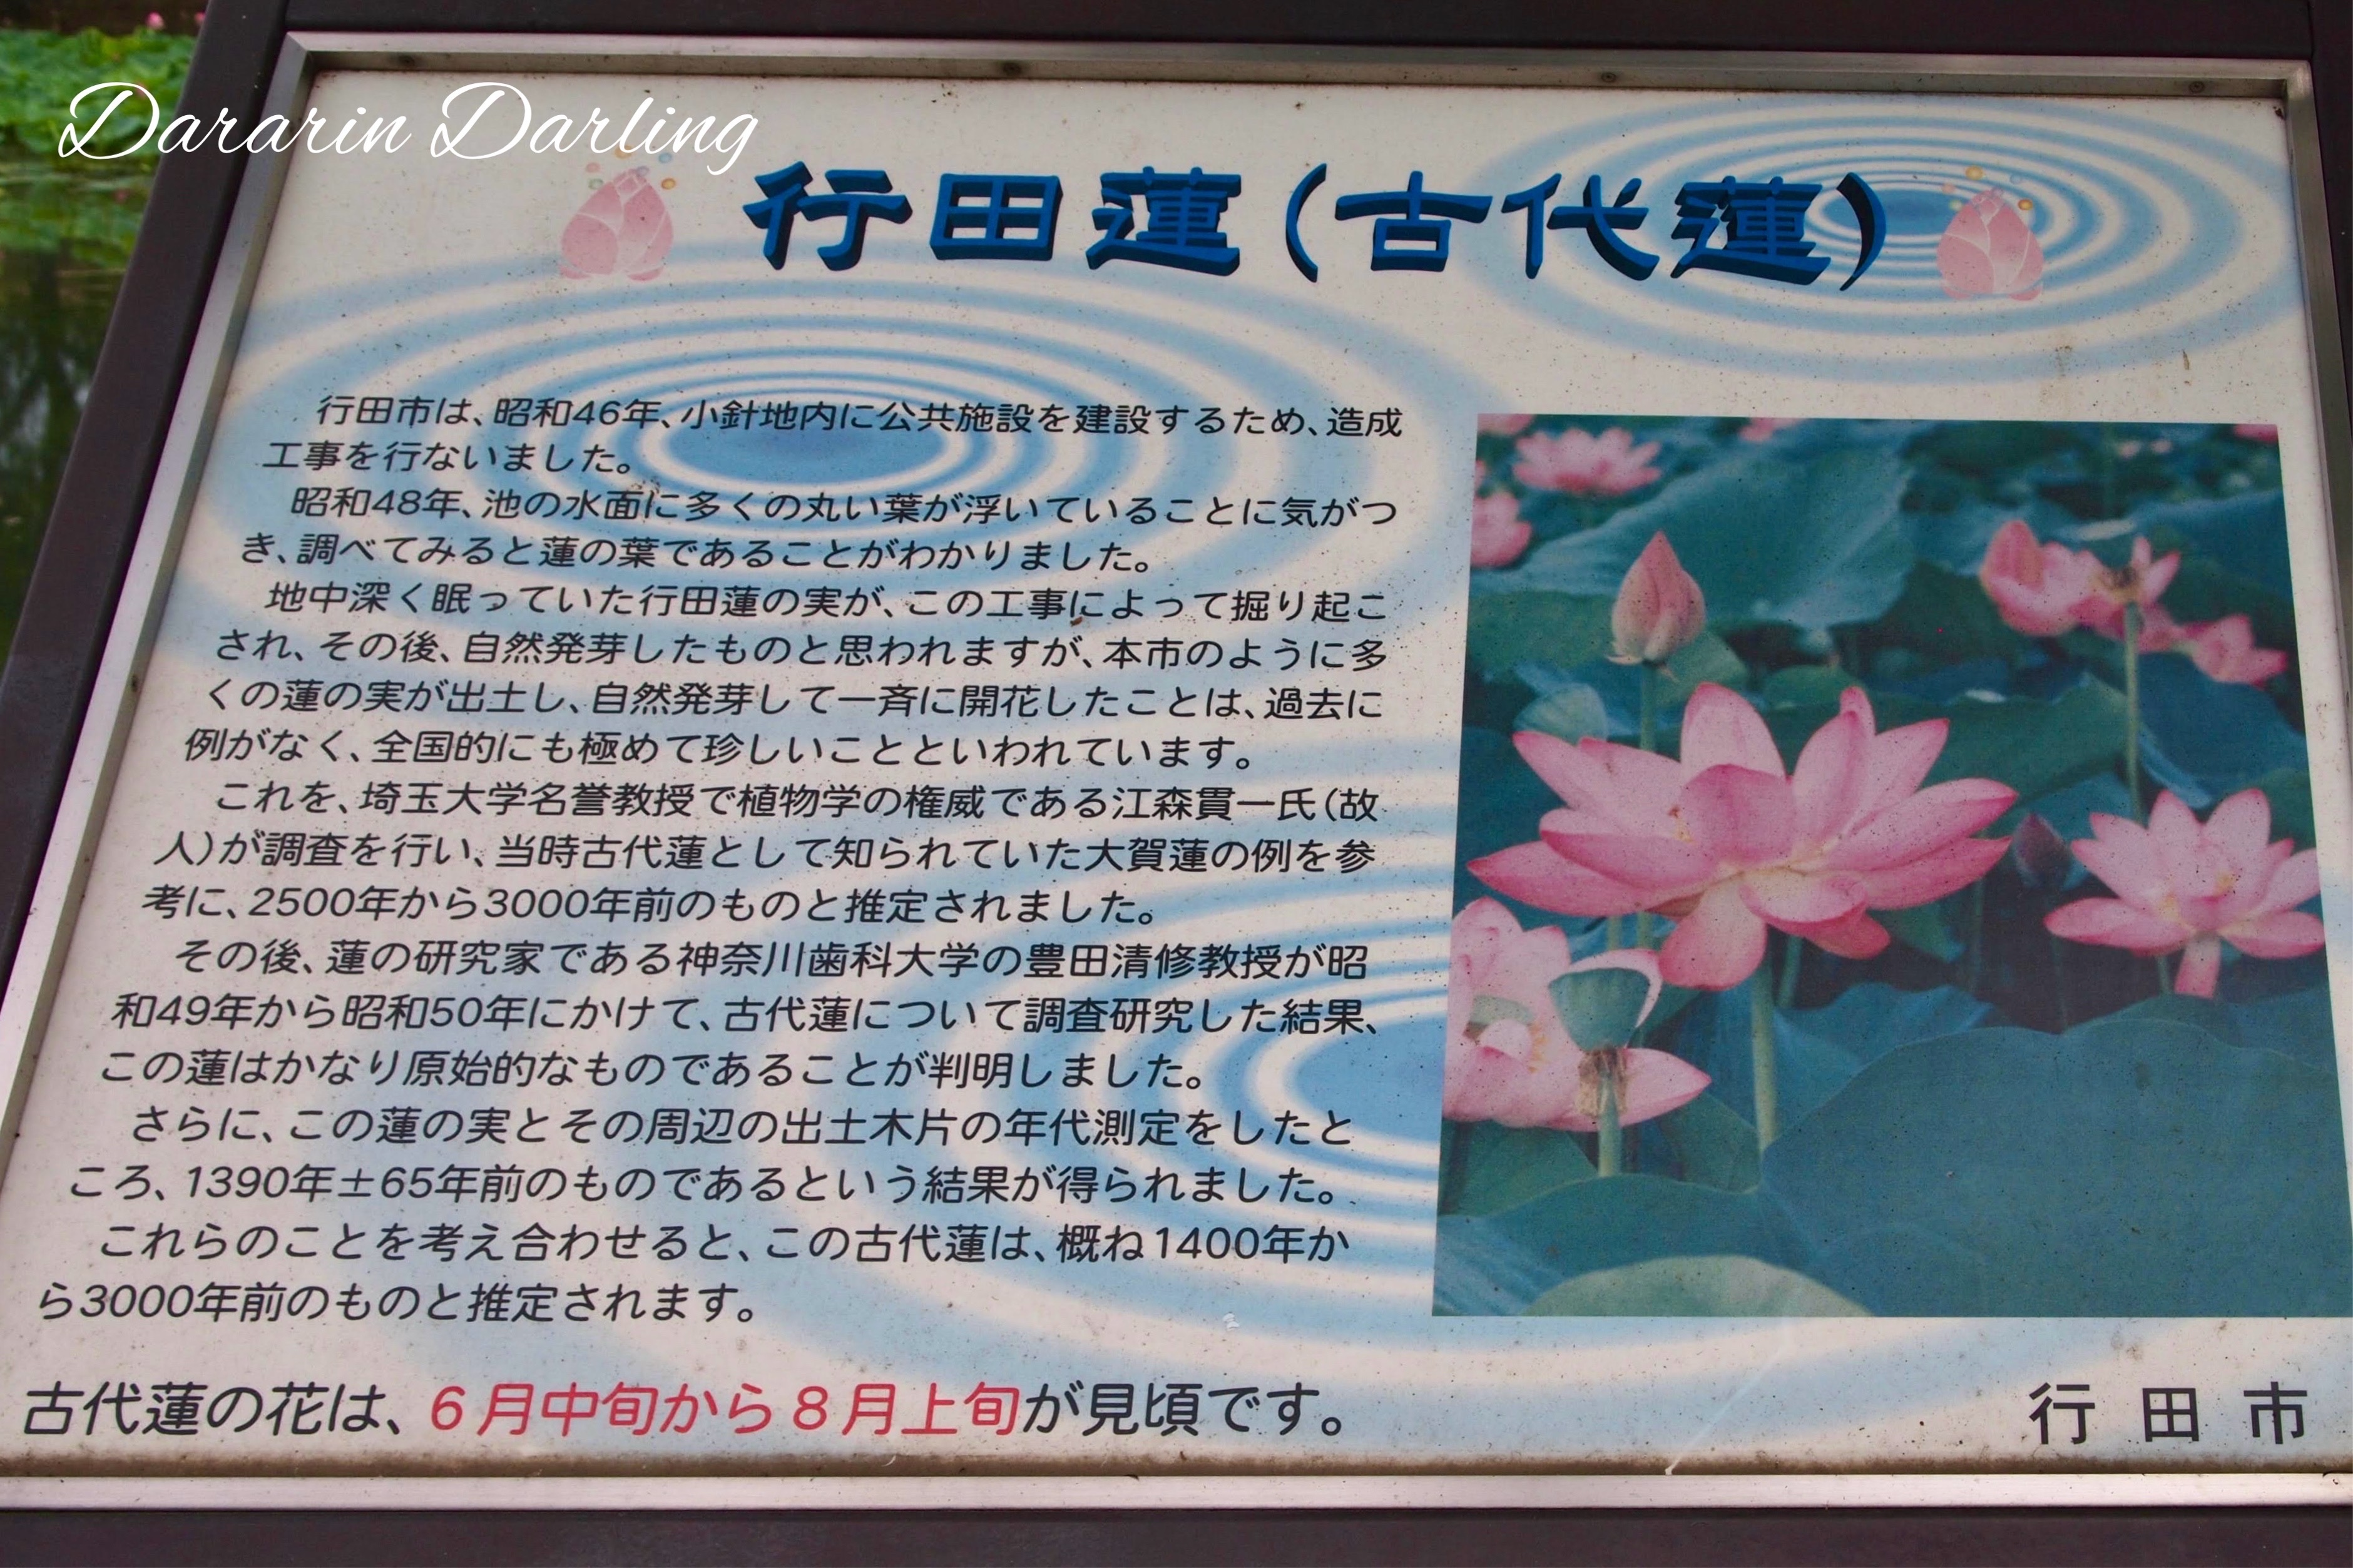 Dararin Darling
行田蓮(古代蓮)
行田市は、昭和46年、小針地内に公共施設を建設するため、造成
工事を行ないました。
昭和48年、池の水面に多くの丸い葉が浮いていることに気がつ
き、調べてみると蓮の葉であることがわかりました。
地中深く眠っていた行田蓮の実が、この工事によって掘り起こ
され、その後、自然発芽したものと思われますが、本市のように多
くの蓮の実が出土し、自然発芽して一斉に開花したことは、過去に
例がなく、全国的にも極めて珍しいことといわれています。
これを、埼玉大学名誉教授で植物学の権威である江森貫一氏(故
人)が調査を行い、当時古代蓮として知られていた大賀蓮の例を参
考に、2500年から3000年前のものと推定されました。
その後、蓮の研究家である神奈川歯科大学の豊田清修教授が昭
和49年から昭和50年にかけて、古代蓮について調査研究した結果、
この蓮はかなり原始的なものであることが判明しました。
さらに、この蓮の実とその周辺の出土木片の年代測定をしたと
ころ、1390年±65年前のものであるという結果が得られました。
これらのことを考え合わせると、この古代蓮は、概ね1400年か
ら3000年前のものと推定されます。
古代蓮の花は、6月中旬から8月上旬が見頃です。
行田市